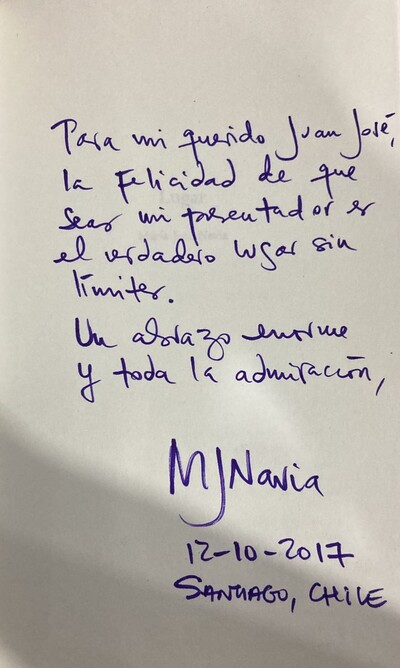 Para mi querido Juan José,
la Felicidad de que
seas mi presentador es
el verdadero lugar sin
límites.
Un abrazo enorme
y toda la admiración,
MJNavia
12-10-2017
SANTIAGO, CHILE